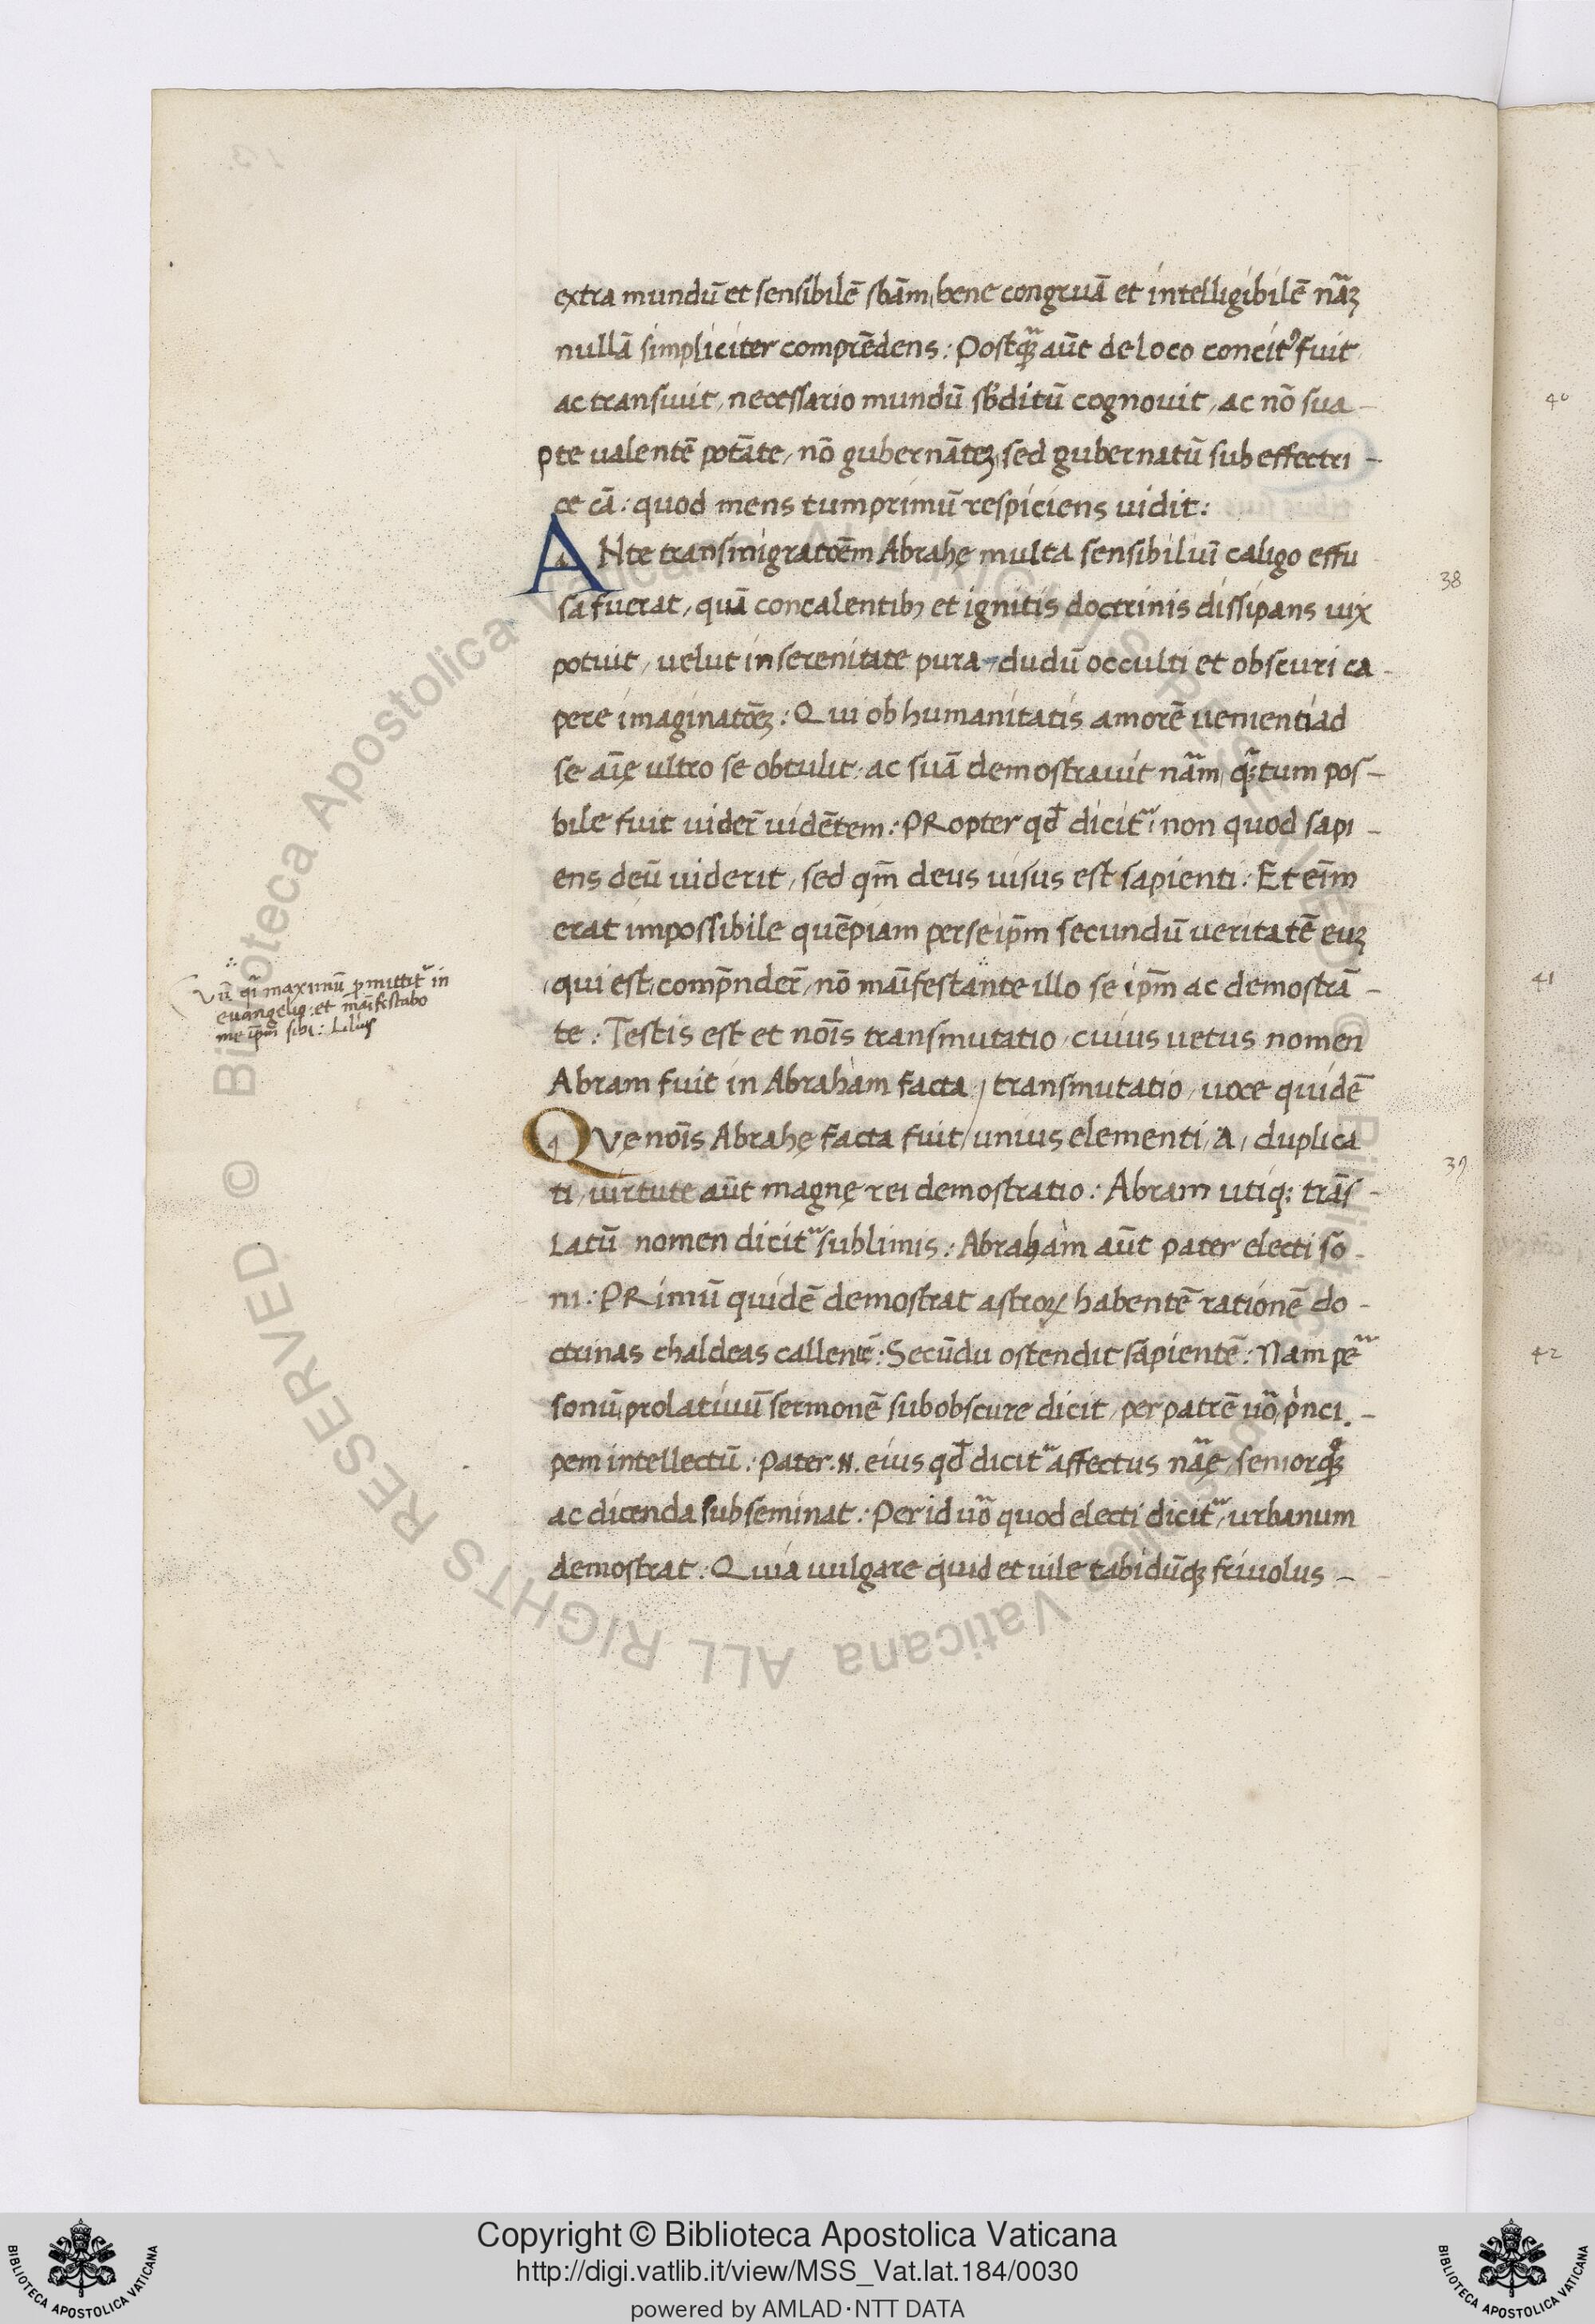 extra mundū et sensibilē sbāꝫ, bene congruā et intelligibilē nāꝫ
nullā simpliciter comprēdens: Postqꝫ aūt de loco concitꝰ fuit
ac transiuit, necessario mundū sb̄ditū cognouit, ac nō sua-
pte ualentē potāte, nō gubernātēꝫ, sed gubernatū sub effectri-
ce cā: quod mens tum primū respiciens uidit:
ANte transmigratōēm Abrahę multa sensibiliuꝫ caligo effu
sa fuerat, quā concalentibꝫ et ignitis doctrinis dissipans uix
potuit, uelut in serenitate pura dudū occulti et obscuri ca-
pere imaginatōēꝫ: Qui ob humanitatis amorē uenienti ad
se aīę ultro se obtulit ac suā demostrauit nām, qꝫtum pos-
bile fuit uiderē uidētem: PRopter qd̄ dicit᷑, non quod sapi-
ens deū uiderit, sed qm̄ deus uisus est sapienti: Et eīm
erat impossibile quēpiam per se ip̄m secundū ueritatē euꝫ
qui est comp̄nderē, nō māifestante illo se ip̄m ac demostrā-
te: Testis est et noīs transmutatio, cuius uetus nomen
Abram fuit in Abraham facta, transmutatio, uoce quidē
QVę noīs Abrahę facta fuit, unius elementi, A, duplica
ti, uirtute aūt magnę rei demostratio: Abram utiqꝫ trās-
latū nomen dicit᷑ sublimis: Abraham aūt pater electi so-
ni: PRimū quidē demostrat astroꝝ habentē rationē do-
ctrinas chaldeas callentē: Secūdu ostendit sapientē: Nam pe᷑
sonū, prolatiuū sermonē subobscure dicit, per patrē uō, princi-
pem intellectū: Pater .N. eius qd̄ dicit᷑ affectus nāę, seniorqꝫ
ac dicenda subseminat: Per id uō quod electi dicit᷑, urbanum
demostrat: Quia uulgare quid et uile tabidūqꝫ friuolus-
Vn̄ qī maximū p̄mittit᷑ in
euangelio: et māifestabo
me ip̄m sibi: Lilius
38
39
40
41
42
Copyright © Biblioteca Apostolica Vaticana
http://digi.vatlib.it/view/MSS_Vat.lat.184/0030
powered by AMLAD·NTT DATA
BIBLIOTECA APOSTOLICA VATICANA
BIBLIOTECA APOSTOLICA VATICANA
Biblioteca Apostolica Vaticana ALL RIGHTS RESERVED ©